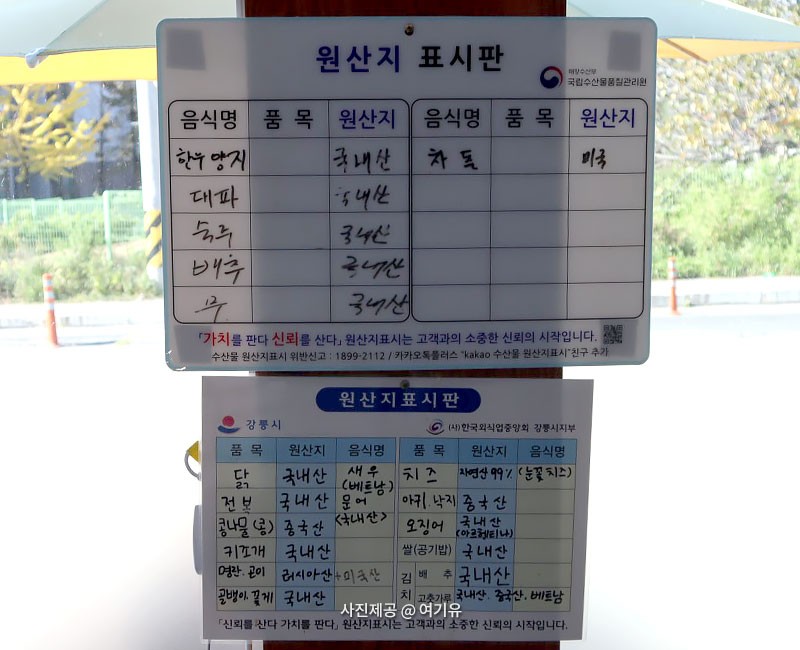 원산지 표시판
해양수산부
국립수산물품질관리원
음식명 품 목 원산지 음식명 품 목 원산지
한우 양지 국내산 차돌 미국
대파 국내산
숙주 국내산
배추 국내산
무 국내산
「가치를 판다 신뢰를 산다」 원산지표시는 고객과의 소중한 신뢰의 시작입니다.
수산물 원산지표시 위반신고 : 1899-2112 / 카카오톡플러스 "kakao 수산물 원산지표시"친구 추가
원산지표시판
강릉시 (사)한국외식업중앙회 강릉시지부
품 목 원산지 음식명 품 목 원산지 음식명
닭 국내산 새우 치즈 자연산 99% (눈꽃치즈)
(베트남)
전복 국내산 문어 아귀.낙지 중국산
<국내산>
콩나물(콩) 중국산 오징어 국내산
(아르헨티나)
키조개 국내산 쌀(공기밥) 국내산
명란.곤이 러시아산+미국산 김치 배추 국내산
골뱅이.꽃게 국내산 고춧가루 국내산. 중국산. 베트남
사진제공 @ 여기유
「신뢰를 산다 가치를 판다」 원산지표시는 고객과의 소중한 신뢰의 시작입니다.